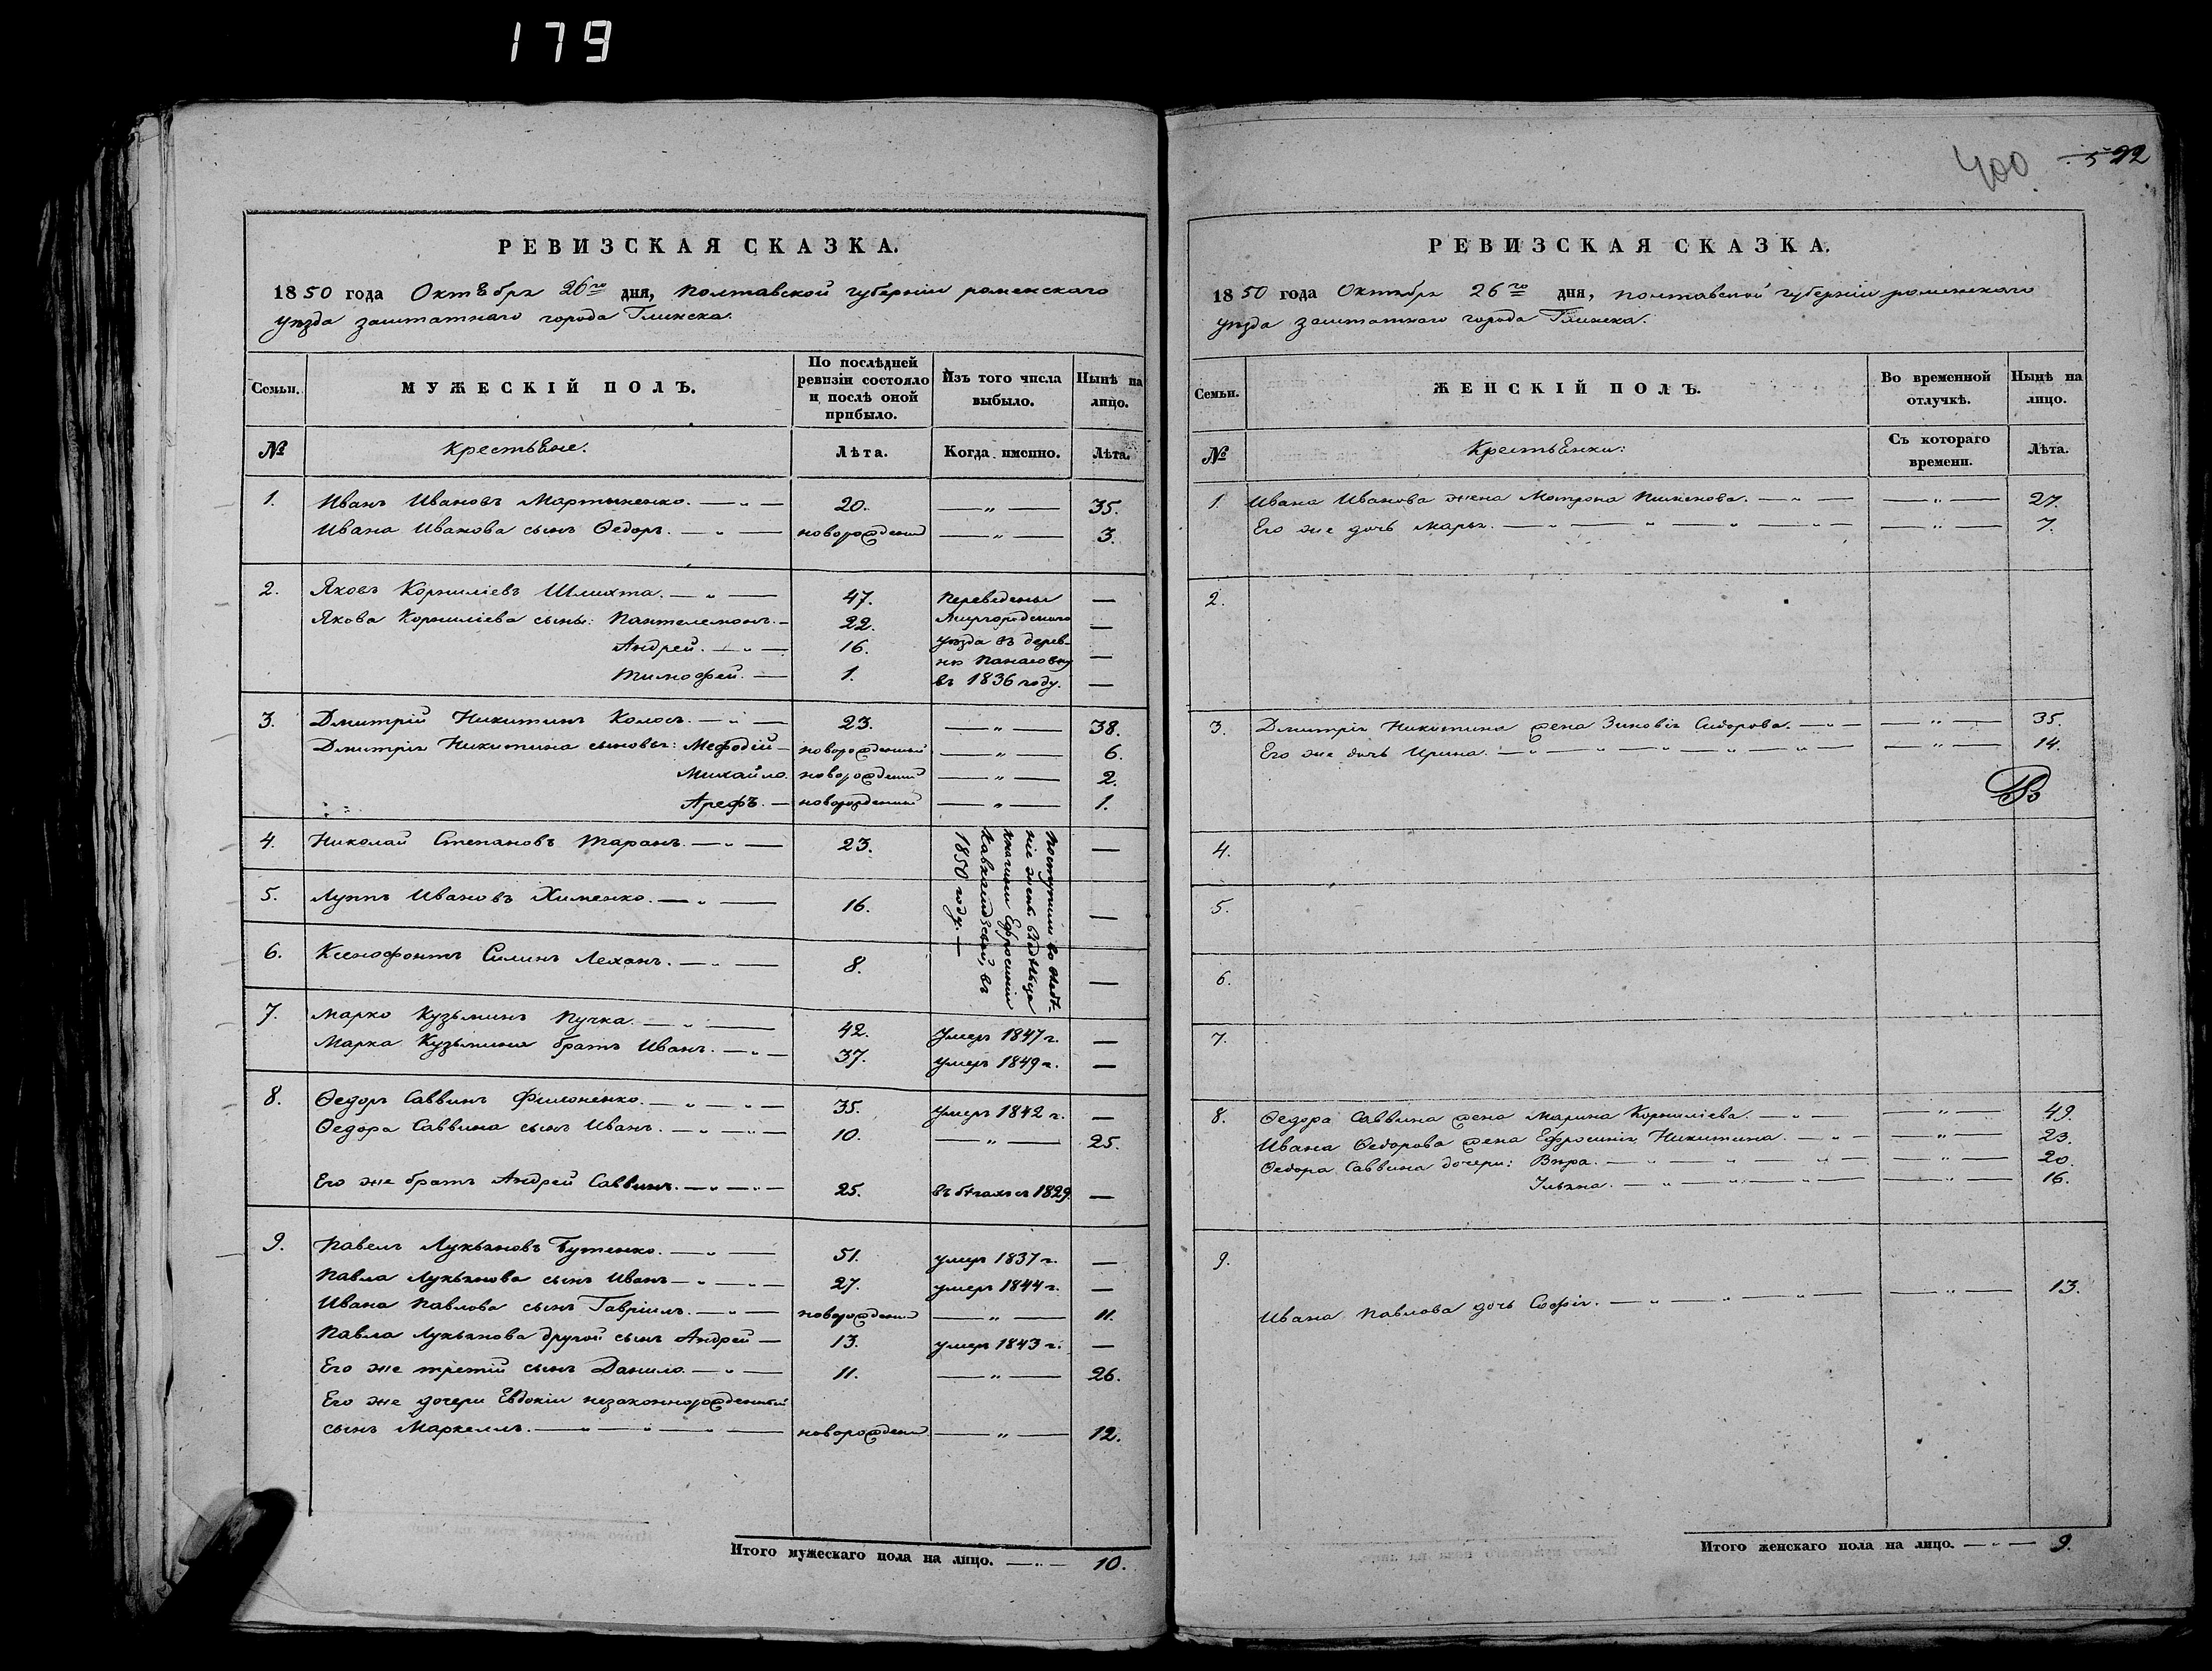 179
РЕВИЗСКАЯ СКАЗКА.
1850 года Октября 26го дня, Полтавской губерніи роменскаго
уѣзда заштатнаго города Глинска.
Семьи.
МУЖЕСКІЙ ПОЛЪ.
По послѣдней ревизіи состояло и послѣ оной прибыло.
Изъ того числа выбыло.
Нынѣ на лицо.
№
Крестьяне.
Лѣта.
Когда именно.
Лѣта.
1. Иванъ Ивановъ Мартыненко. — „ — 20. — „ — 35.
Ивана Иванова сынъ Ѳедоръ. — „ — новорожденный — „ — 3.
2. Яковъ Корниліевъ Шлихта. — „ — 47. Переведены —
Якова Корниліева сыны: Пантелемонъ. — 22. Миргородскаго —
Андрей. — „ — 16. уѣзда въ дерев-
ню Панасовку —
Тимофей. — 1. въ 1836 году. —
3. Дмитрій Никитинъ Колосъ. — „ — 23. — „ — 38.
Дмитрія Никитина сыновья: Мефодій — новорожденный — „ — 6.
Михайло. новорожденный — „ — 2.
Арефъ. — новорожденный — „ — 1.
4. Николай Степановъ Таранъ. — „ — 23. —
5. Луппъ Ивановъ Хименко. — „ — 16. —
6. Ксенофонтъ Силинъ Леханъ. — „ — 8. —
Поступили во владѣ-
ніе
Ефросиніи
въ
1850 году. —
7. Марко Кузьминъ Пучка. — „ — 42. умеръ 1847 г. —
Марка Кузьмина братъ Иванъ. — „ — 37. умеръ 1849 г. —
8. Ѳедоръ Саввинъ Филоненко. — „ — „ — 35. умеръ 1842 г. —
Ѳедора Саввина сынъ Иванъ. — „ — „ — 10. — „ — 25.
Его же братъ Андрей Саввинъ. — „ — „ — 25. въ бѣгахъ съ 1829. —
9. Павелъ Лукьяновъ Бутенко. — „ — 51. умеръ 1837 г. —
Павла Лукьянова сынъ Иванъ — „ — „ — 27. умеръ 1844 г. —
Ивана Павлова сынъ Гавріилъ. — „ — новорожденный — „ — 11.
Павла Лукьянова другой сынъ Андрей — 13. умеръ 1843 г. —
Его же третій сынъ Данило. — „ — 11. — „ — 26.
Его же дочери Евдокіи незаконнорожденный
сынъ Маркеллъ. — „ — „ — „ — новорожденный — „ — 12.
Итого мужескаго пола на лицо. — „ — 10.
400 522
РЕВИЗСКАЯ СКАЗКА.
1850 года Октября 26го дня, полтавской губерніи роменскаго
уѣзда заштатнаго города Глинска.
Семьи.
ЖЕНСКІЙ ПОЛЪ.
Во временной отлучкѣ.
Нынѣ на лицо.
№
Крестьянки:
Съ котораго времени.
Лѣта.
1. Ивана Иванова жена Матрона Пименова. — „ — — „ — 27.
Его же дочь Марья. — „ — „ — „ — „ — — „ — 7.
2.
3. Дмитрія Никитина жена Зиновія Сидорова. — „ — — „ — 35.
Его же дочь Ирина. — „ — „ — „ — „ — „ — — „ — 14.
4.
5.
6.
7.
8. Ѳедора Саввина жена Марина Корниліева. — „ — — „ — 49.
Ивана Ѳедорова жена Ефросинія Никитина. — „ — — „ — 23.
Ѳедора Саввина дочери: Вѣра. — „ — „ — „ — — „ — 20.
Ульяна. — „ — „ — „ — — „ — 16.
9.
Ивана Павлова дочь Софія. — „ — „ — „ — — „ — 13.
Итого женскаго пола на лицо. — „ — 9.